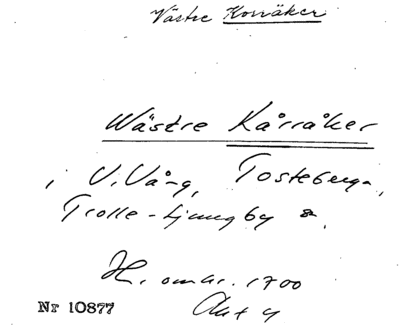 Västre Korråker
Wästre Kårråker
i V. Vång, Tosteberga,
Trolle-Ljungby
H. omkr. 1700
Nr 10877 Akt 4